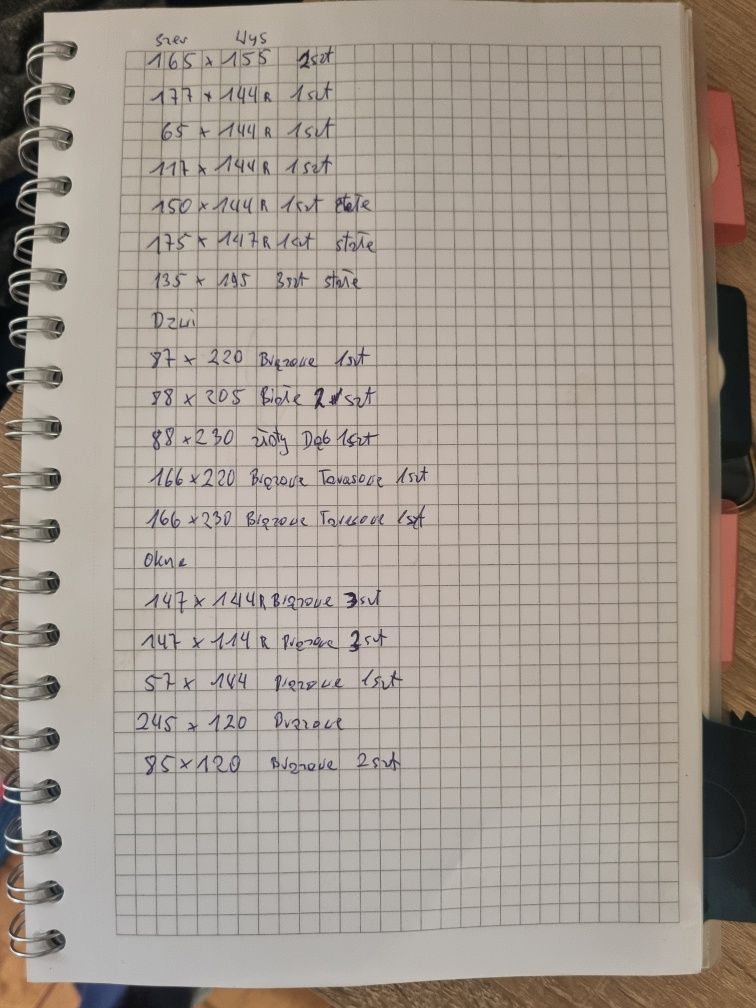 szer wys
165 x 155 2szt
177 x 144 R 1szt
65 x 144 R 1szt
117 x 144 R 1szt
150 x 144 R 1szt stałe
175 x 147 R 1szt stałe
135 x 195 3szt stałe
Dzwi
87 x 220 Brązowe 1szt
88 x 205 Białe 2 szt
88 x 230 złoty Dąb 1szt
166 x 220 Brązowe Tarasowe 1szt
166 x 230 Brązowe Tarasowe 1szt
Okna
147 x 144 R Brązowe 3szt
147 x 114 R Brązowe 3szt
57 x 144 Brązowe 1szt
245 x 120 Brązowe
85 x 120 Brązowe 2szt